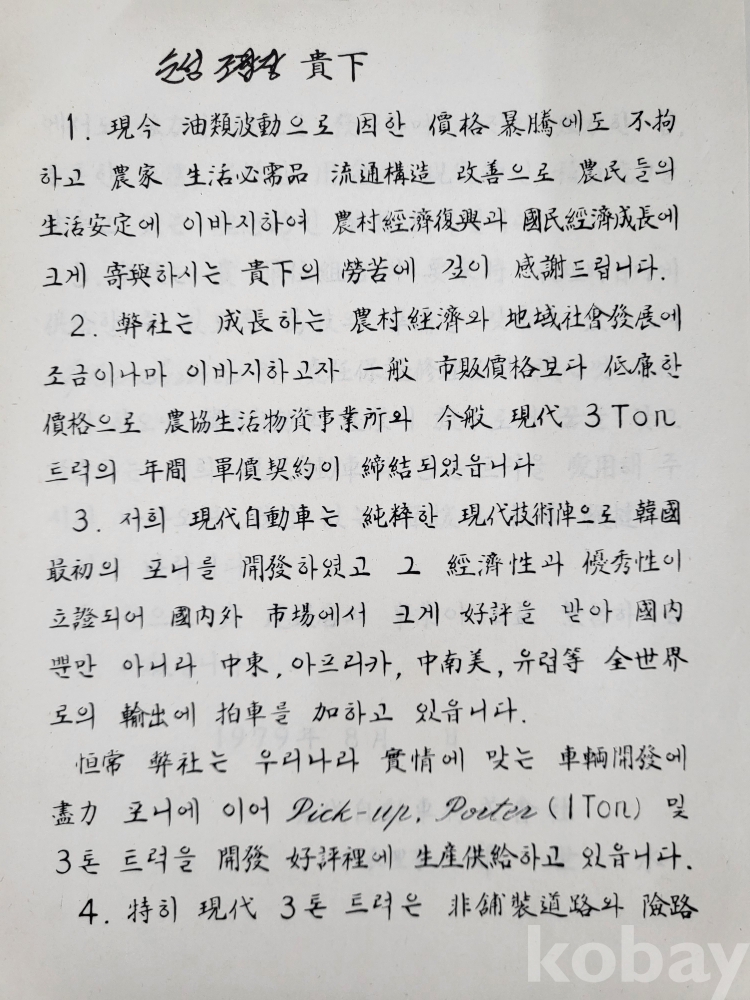 순성 조합장 貴下
1. 現今 油類波動으로 因한 價格 暴騰에도 不拘
하고 農家 生活必需品 流通構造 改善으로 農民들의
生活安定에 이바지하여 農村經濟復興과 國民經濟成長에
크게 寄與하시는 貴下의 勞苦에 깊이 感謝드립니다.
2. 弊社는 成長하는 農村經濟와 地域社會發展에
조금이나마 이바지하고자 一般 市販價格보다 低廉한
價格으로 農協生活物資事業所와 今般 現代 3Ton
트럭의 年間 單價契約이 締結되었읍니다
3. 저희 現代自動車는 純粹한 現代技術陣으로 韓國
最初의 포니를 開發하였고 그 經濟性과 優秀性이
立證되어 國內外 市場에서 크게 好評을 받아 國內
뿐만 아니라 中東, 아프리카, 中南美, 유럽等 全世界
로의 輸出에 拍車를 加하고 있읍니다.
恒常 弊社는 우리나라 實情에 맞는 車輛開發에
盡力 포니에 이어 Pick-up, Porter (1Ton) 및
3톤 트럭을 開發 好評裡에 生産供給하고 있읍니다.
4. 特히 現代 3톤 트럭은 非鋪裝道路와 險路
1979年 8月 日
kobay